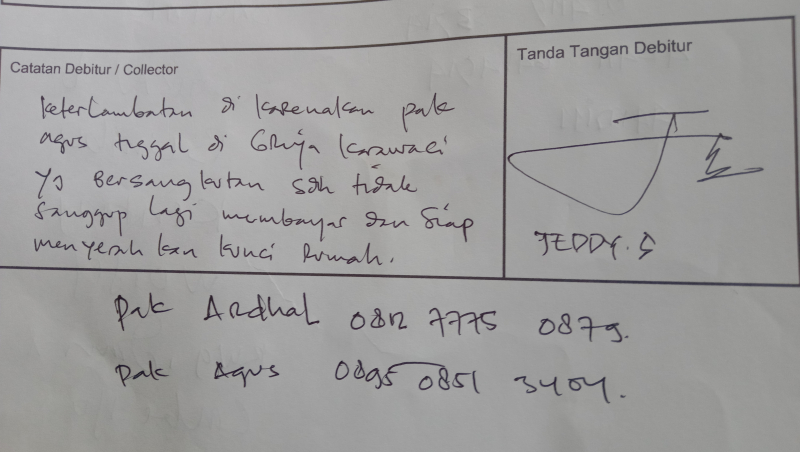 Catatan Debitur / Collector
Tanda Tangan Debitur
Keterlambatan di karenakan pak
agus tinggal di Griya Karawaci
Yg Bersangkutan sdh tidak
Sanggup lagi membayar dan Siap
menyerah kan kunci Rumah.
TEDDY. S
Pak Ardhal 0812 7775 0879.
Pak Agus 0895 0851 3404.